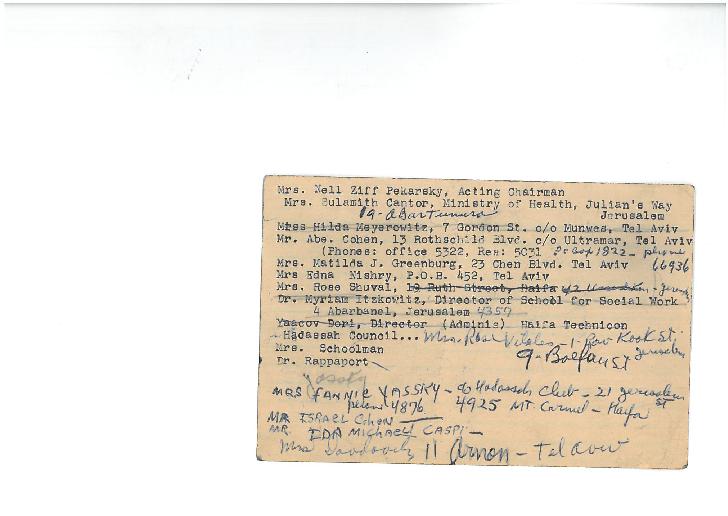 Mrs. Nell Ziff Pekarsky, Acting Chairman
Mrs. Sulamith Cantor, Ministry of Health, Julian's Way
19-A Bartenura Jerusalem
Miss Hilda Meyerowitz, 7 Gordon St. c/o Munwes, Tel Aviv
Mr. Abe. Cohen, 13 Rothschild Blvd. c/o Ultramar, Tel Aviv
(Phones: office 5322, Res: 5031 PO Box 1822 - phone
Mrs. Matilda J. Greenburg, 23 Chen Blvd. Tel Aviv 66936
Mrs Edna Nishry, P.O.B. 452, Tel Aviv
Mrs. Rose Shuval, 19 Ruth Street, Haifa
Dr. Myriam Itzkowitz, Director of School for Social Work
4 Abarbanel, Jerusalem 4357
Yaacov Dori, Director (Adminis) Haifa Technicon
Hadassah Council... Mrs. Rose Viteles - 1 - Rav Kook St.
Mrs. Schoolman 9 - Balfour St Jerusalem
Dr. Rappaport
Yassky
MRS FANNIE YASSKY - c/o Hadassah Club - 21 Jerusalem St
phone 4876 4925 MT. Carmel - Haifa
MR ISRAEL Cohen
MR. EDA MICHAEL CASPI -
Mrs 11 Arnon - Tel Aviv